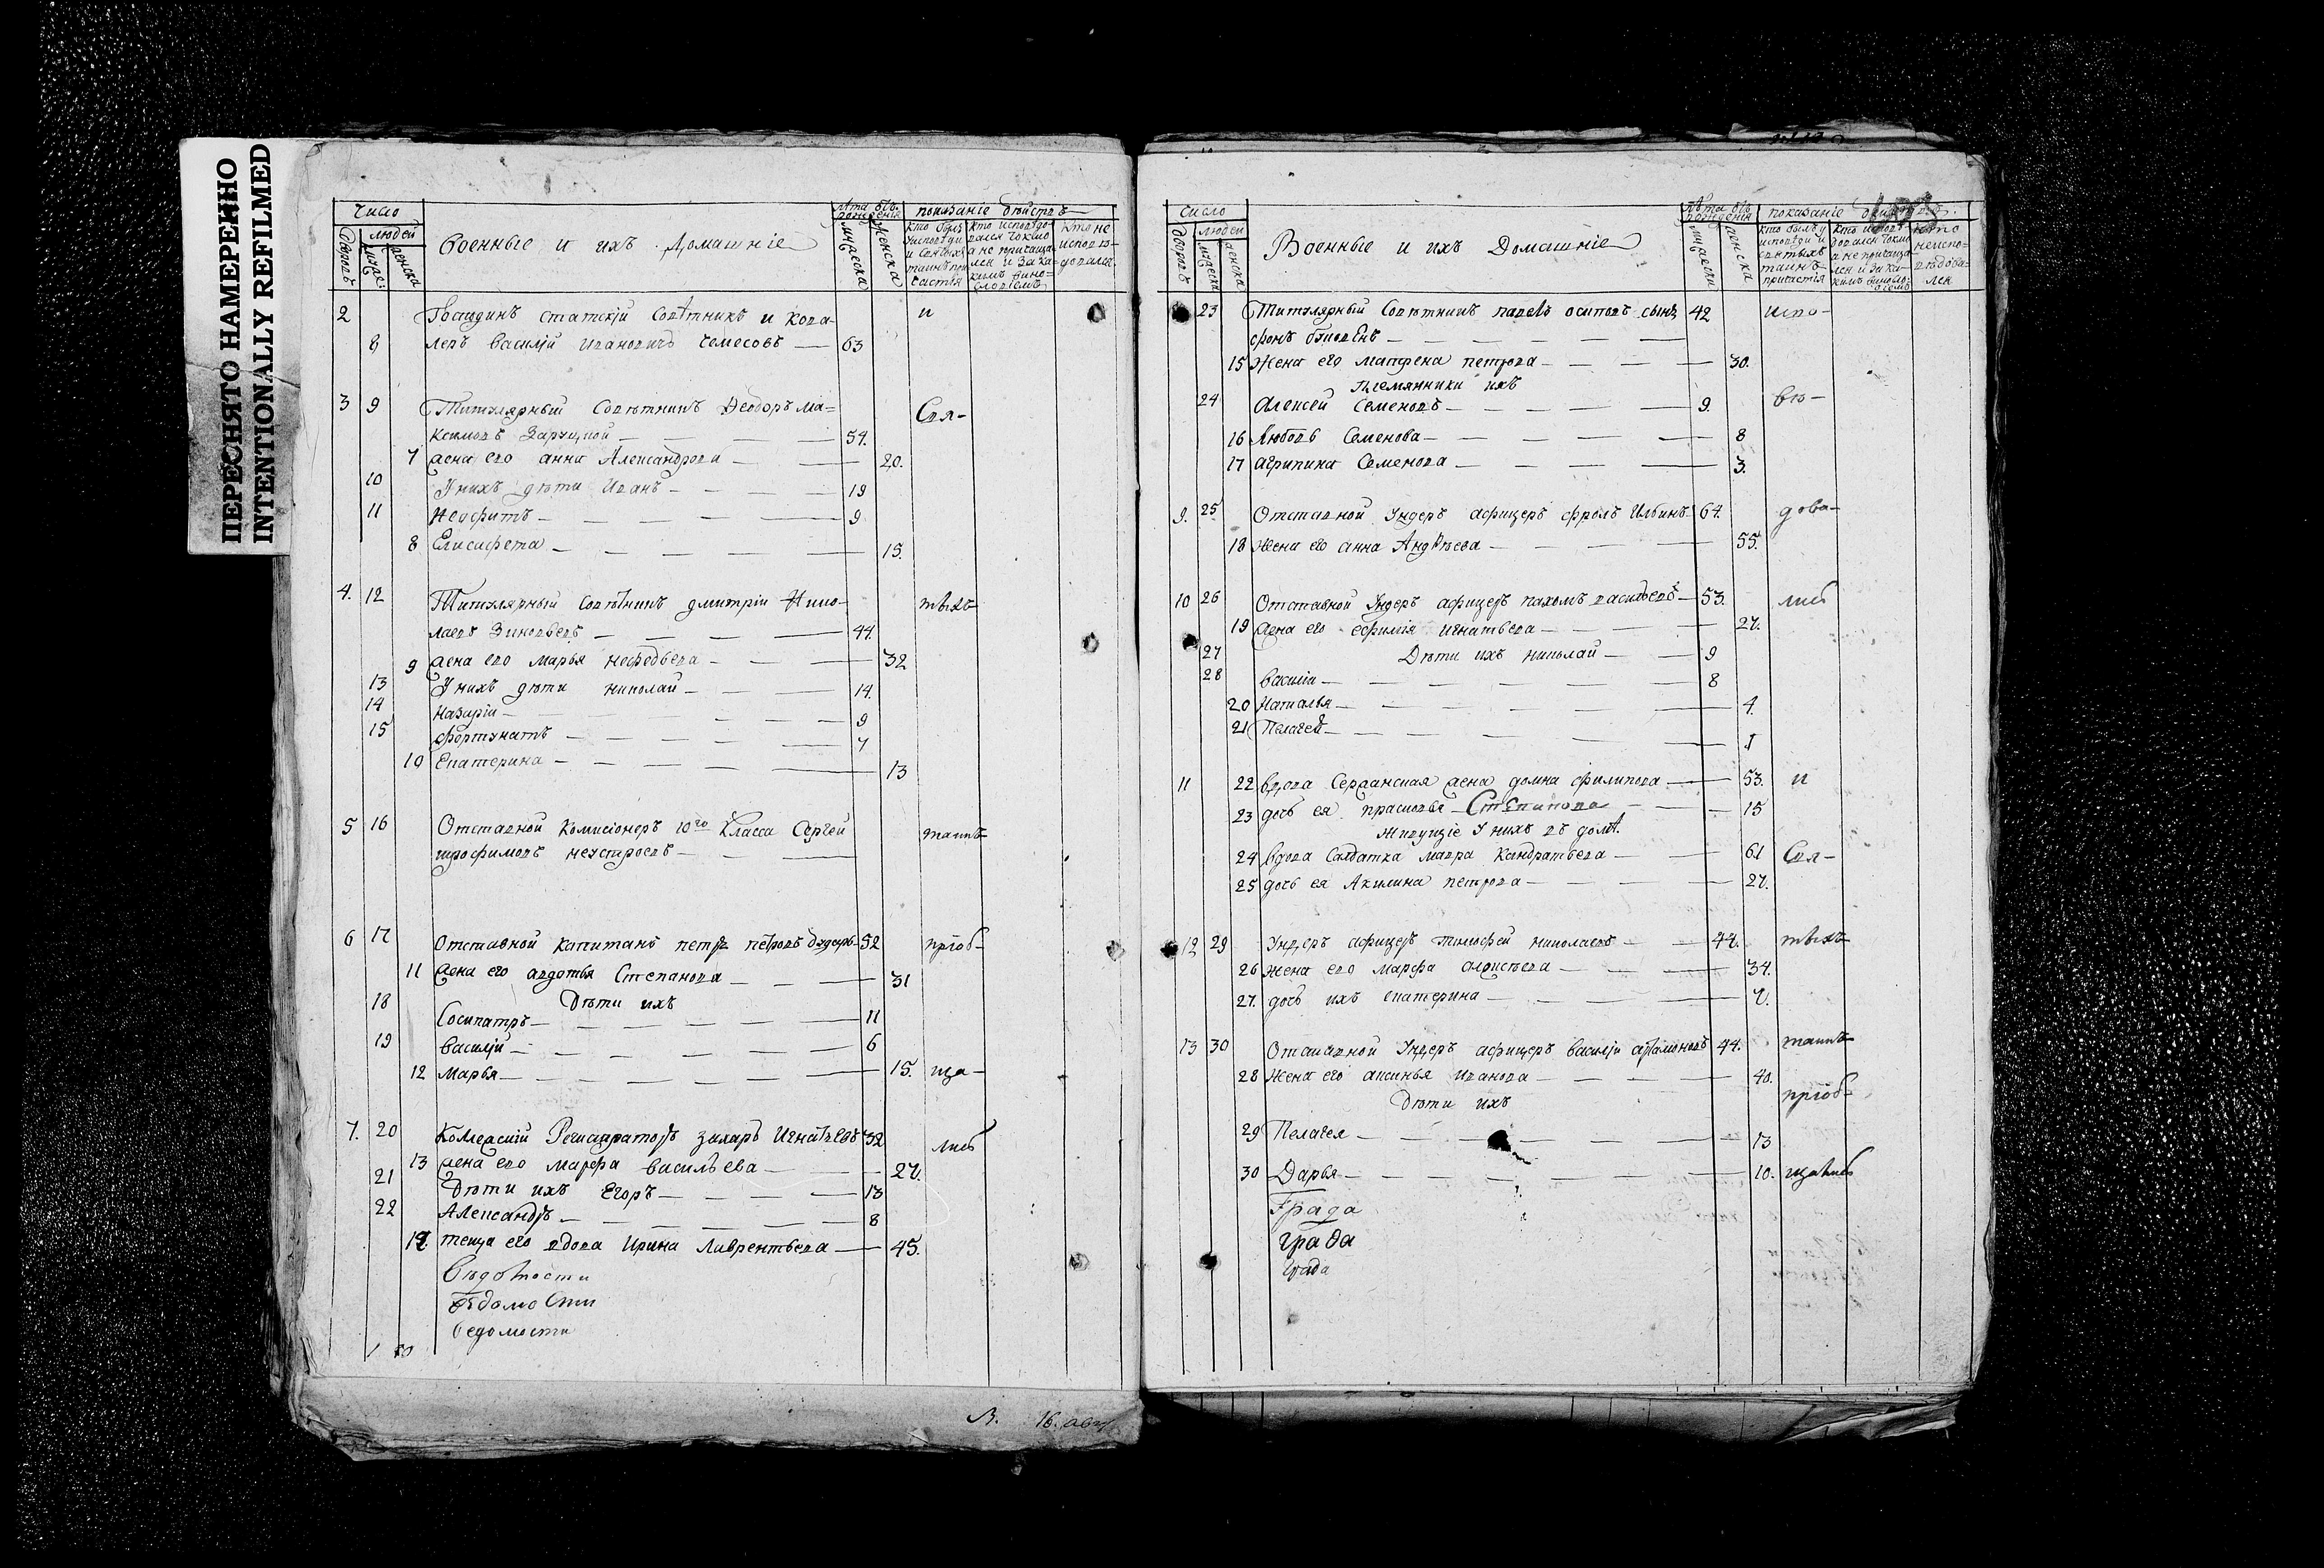 ПЕРЕСНЯТО НАМЕРЕННО
INTENTIONALLY REFILMED
число
людей
Военные и ихъ Домашніе
лѣта отъ рожденія
мужеска
женска
показаніе бытія
кто былъ у исповѣди и святыхъ таинъ причастія
кто исповѣдовался токмо а не причащался и за какимъ винословіемъ
кто не исповѣдовался
2 Господинъ статскій совѣтникъ и кова- и
8 леръ Василій Ивановичъ Чемесовъ — 63
3 9 Титулярный Совѣтникъ Ѳеодоръ Ма= Свя-
ксимовъ Заруцной — 54.
7 жена его анна Александрова — 20.
10 У нихъ дѣти Иванъ — 19
11 Неофитъ — 9
8 Елисафета — 15.
4. 12 Титулярный Совѣтникъ Дмитріи Нико- тыхъ
лаевъ Зиновьевъ — 44.
9 жена его Марья нефедьева — 32
13 У нихъ дѣти николаи — 14.
14 Назаріи — 9
15 Фортунатъ — 7
10 Екатерина — 13
5 16 Отставной Комисіонеръ 10го Класса Сергей таинъ
трофимовъ неустроевъ —
6 17 Отставной капитанъ петръ петровъ 52 пріоб-
11 жена его авдотья Степанова — 31
Дѣти ихъ
18 Сосипатръ — 11
19 Василій — 6
12 Марья — 15. ща-
7. 20 Колежскій Регистраторъ захаръ Игнатьевъ 32 лись
13 жена его Марфа Васильева — 27.
21 Дѣти ихъ Егоръ — 13
22 Александръ — 8
14 теща его вдова Ирина Лаврентьева — 45.
Вѣдомости
Вѣдомости
Ведомости
16. авг
число
людей
Военные и ихъ Домашніе
лѣта отъ рожденія
мужеска
женска
показаніе
кто былъ у исповѣди и святыхъ таинъ причастія
кто исповѣдовался токмо а не причащался и за какимъ винословіемъ
кто неисповѣдовался
23 Титулярный Совѣтникъ павелъ осиповъ сынъ 42 испо-
фонъ —
15 Жена его матрена петрова — 30.
Племянники ихъ
24 Алексей Семеновъ — 9. вѣ-
16 Любовь Семенова — 8
17 агрипина Семенова — 3.
9. 25 Отставной Ундеръ афицеръ фролъ Ильинъ 64. дова-
18 жена его анна Андрѣева — 55.
10 26 Отставной Ундеръ афицеръ пахомъ васильевъ — 53. лись
19 жена его ефимія игнатьева — 27.
27 Дѣти ихъ николай — 9
28 василіи — 8
20 Наталья — 4.
21 Пелагея — 1
11 22 вдова Сержанская жена домна филипова — 53. и
23 дочь ея прасковья Степанова — 15
Живущіе У нихъ въ домѣ.
24 вдова Салдатка мавра Кандратьева — 61 Свя-
25 дочь ея Акилина петрова — 27.
12 29 Ундеръ афицеръ тимофей николаевъ — 44. тыхъ
26 жена его Марфа алексѣева — 34.
27. дочь ихъ екатерина — 7.
13 30 Отставной Ундеръ афицеръ василіи артамоновъ 44. таинъ
28 жена его аксинья иванова — 40.
Дѣти ихъ пріоб-
29 Пелагея — 13
30 Дарья — 10. щались
Града
града
града